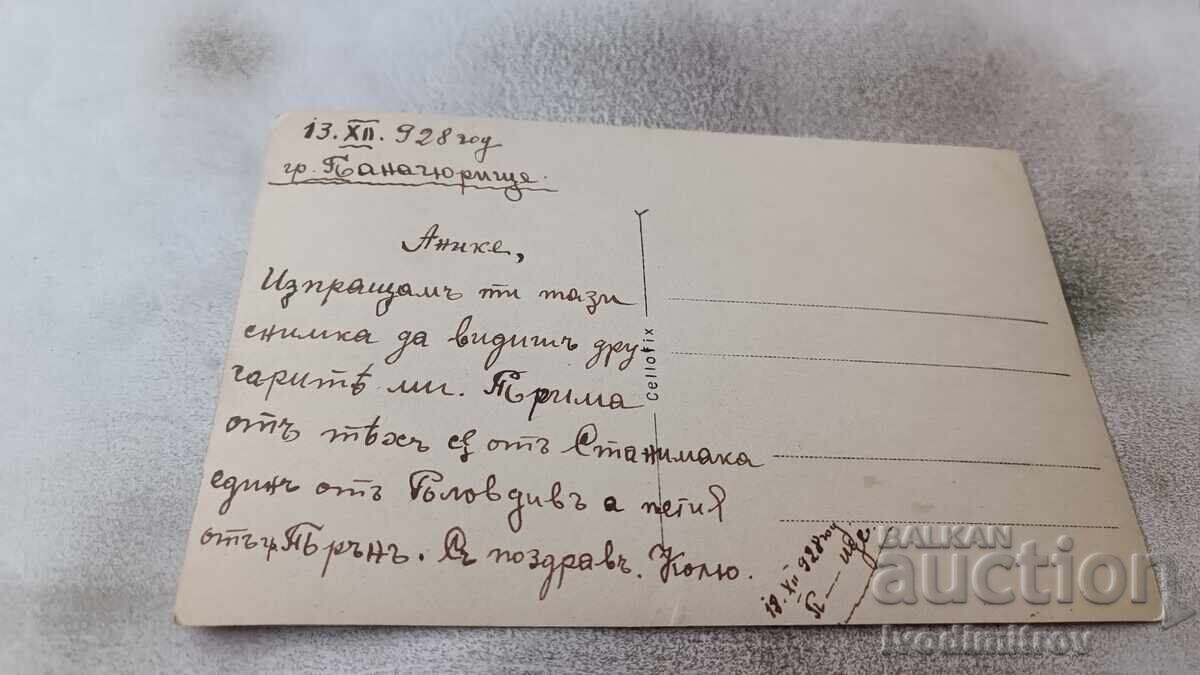 13. XII. 928 год
гр. Панагюрище.
Анике,
Изпращамъ ти тази
снимка да видишъ дру
гаритѣ ми. Трима
отъ тѣхъ сѫ отъ Станимака
единъ отъ Пловдивъ а петия
отъ гр. Трънъ. Съ поздравъ. Колю.
Cellofix
13. XII 928 год
П — ще.
BALKAN
auction
ivodimitrov